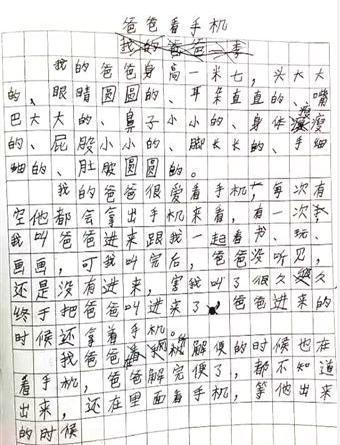 爸爸看手机
我的爸爸身高一米七,头大大
的、眼睛圆圆的、耳朵直直的、嘴
巴大大的、鼻子小小的、身体瘦瘦
的、屁股小小的、脚长长的、手细
细的、肚股圆圆的。
我的爸爸很爱看手机,每次有
空他都会拿出手机来看,有一次
我叫爸爸进来跟我一起看书、玩、
画画,可我叫完后,爸爸没听见,
还是没有进来,害我叫了很久
终于把爸爸叫进来了。爸爸进来的
时候还拿着手机。
我爸爸解便的时候也在
看手机,爸爸解完便了,都不知道
出来,还在里面看手机,等他出来
的时候